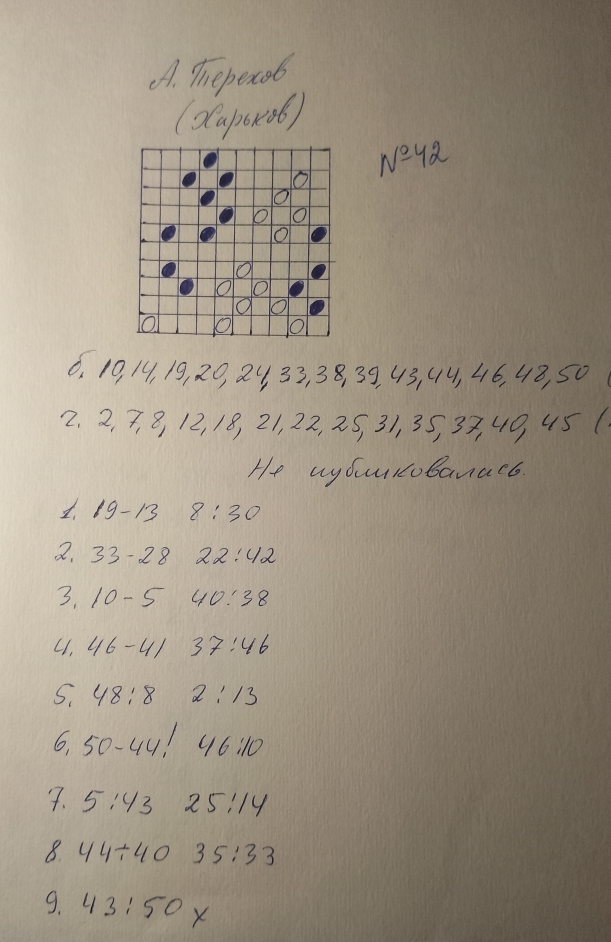 А. Терехов
(Харьков)
№42
б. 10,14,19,20,24,33,38,39,43,44,46,48,50 (
ч. 2,7,8,12,18,21,22,25,31,35,37,40,45 (
Не публиковалась.
1. 19-13 8:30
2. 33-28 22:42
3. 10-5 40:38
4. 46-41 37:46
5. 48:8 2:13
6. 50-44! 46:10
7. 5:43 25:14
8. 44÷40 35:33
9. 43:50 x